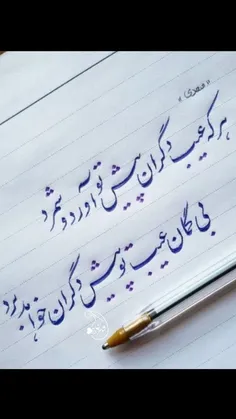 «سعدی»
هر که عیب دگران پیش تو آورد و شمرد
بی گمان عیب تو پیش دگران خواهد برد